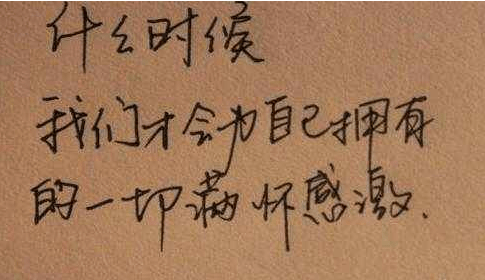 什么时候
我们才会为自己拥有
的一切满怀感激.